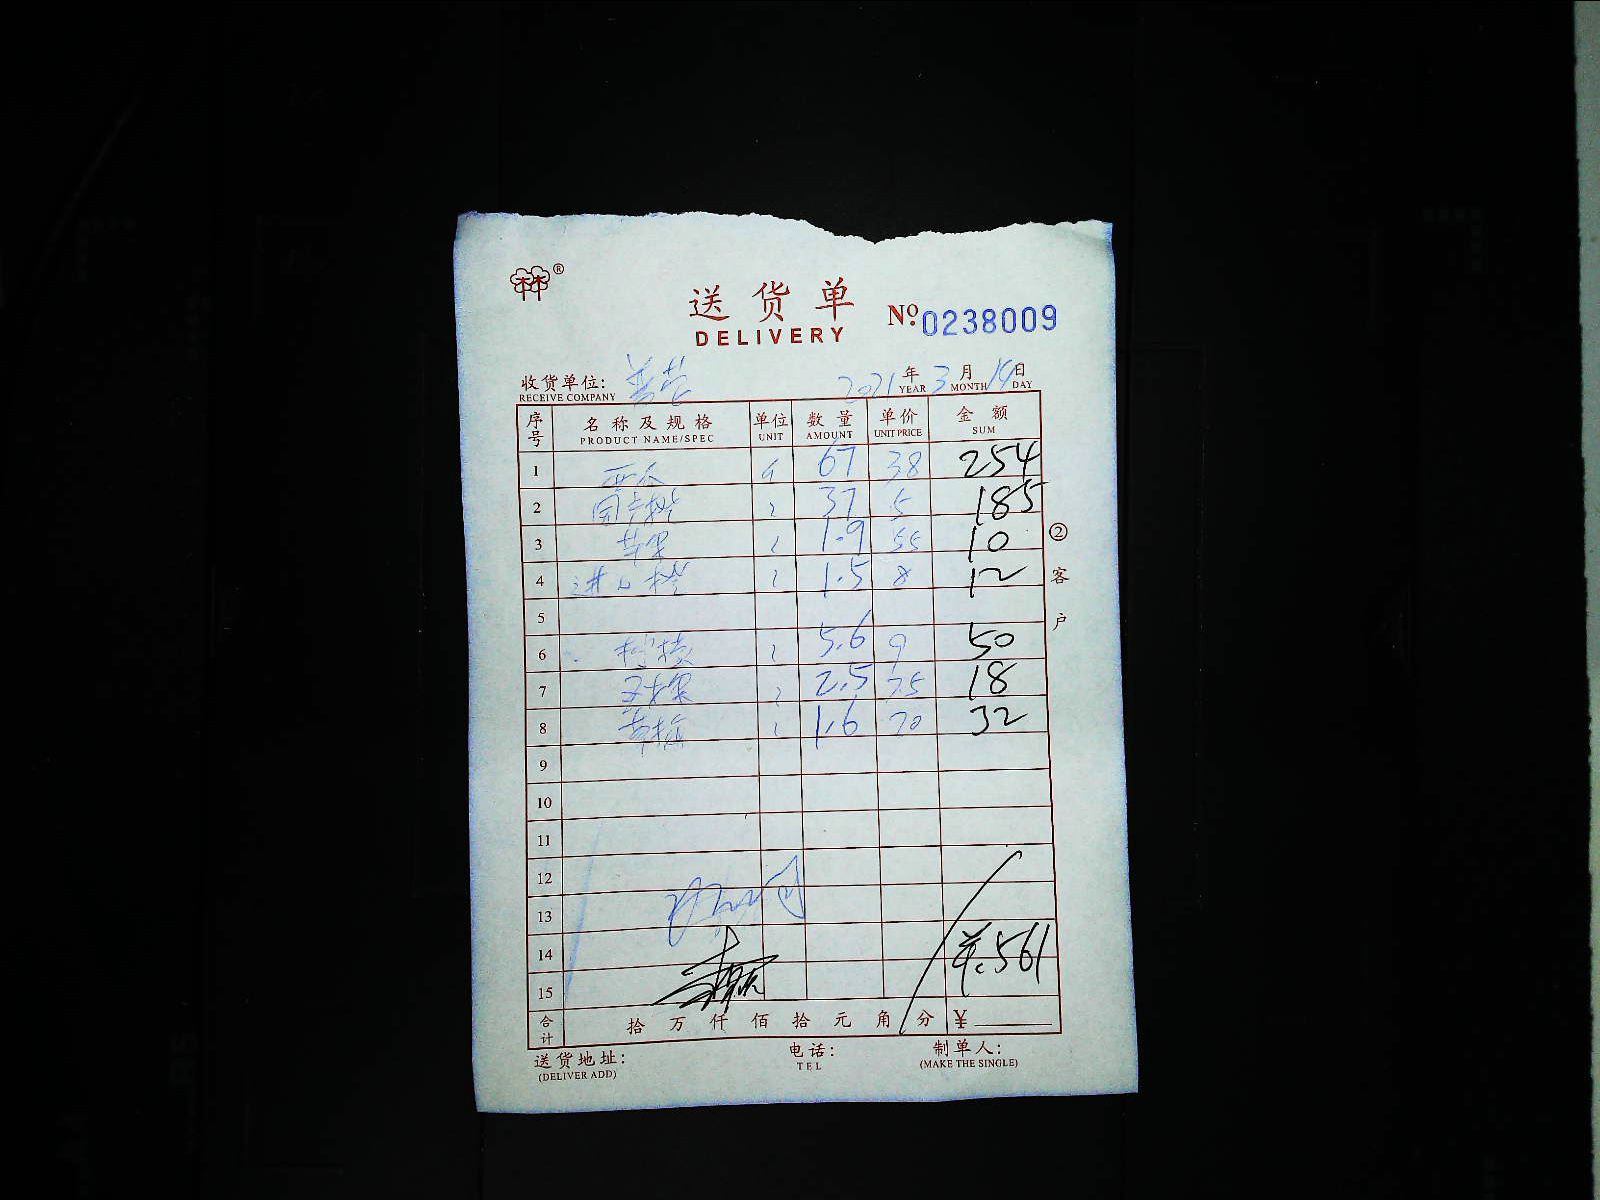 林®
送货单
DELIVERY
№ 0238009
收货单位: 2021年3月14日
RECEIVE COMPANY YEAR MONTH DAY
序号 名称及规格 单位 数量 单价 金额
PRODUCT NAME/SPEC UNIT AMOUNT UNIT PRICE SUM
1 西瓜 67 38 254
2 37 5 185
3 苹果 1.9 55 10
4 进口橙 1.5 8 12
5
6 柠檬 5.6 9 50
7 火龙果 2.5 7.5 18
8 草梅 1.6 20 32
9
10
11
12
13
14 ¥.561
15
合计 拾万仟佰拾元角分 ¥
送货地址: 电话: 制单人:
(DELIVER ADD) TEL (MAKE THE SINGLE)
②客户